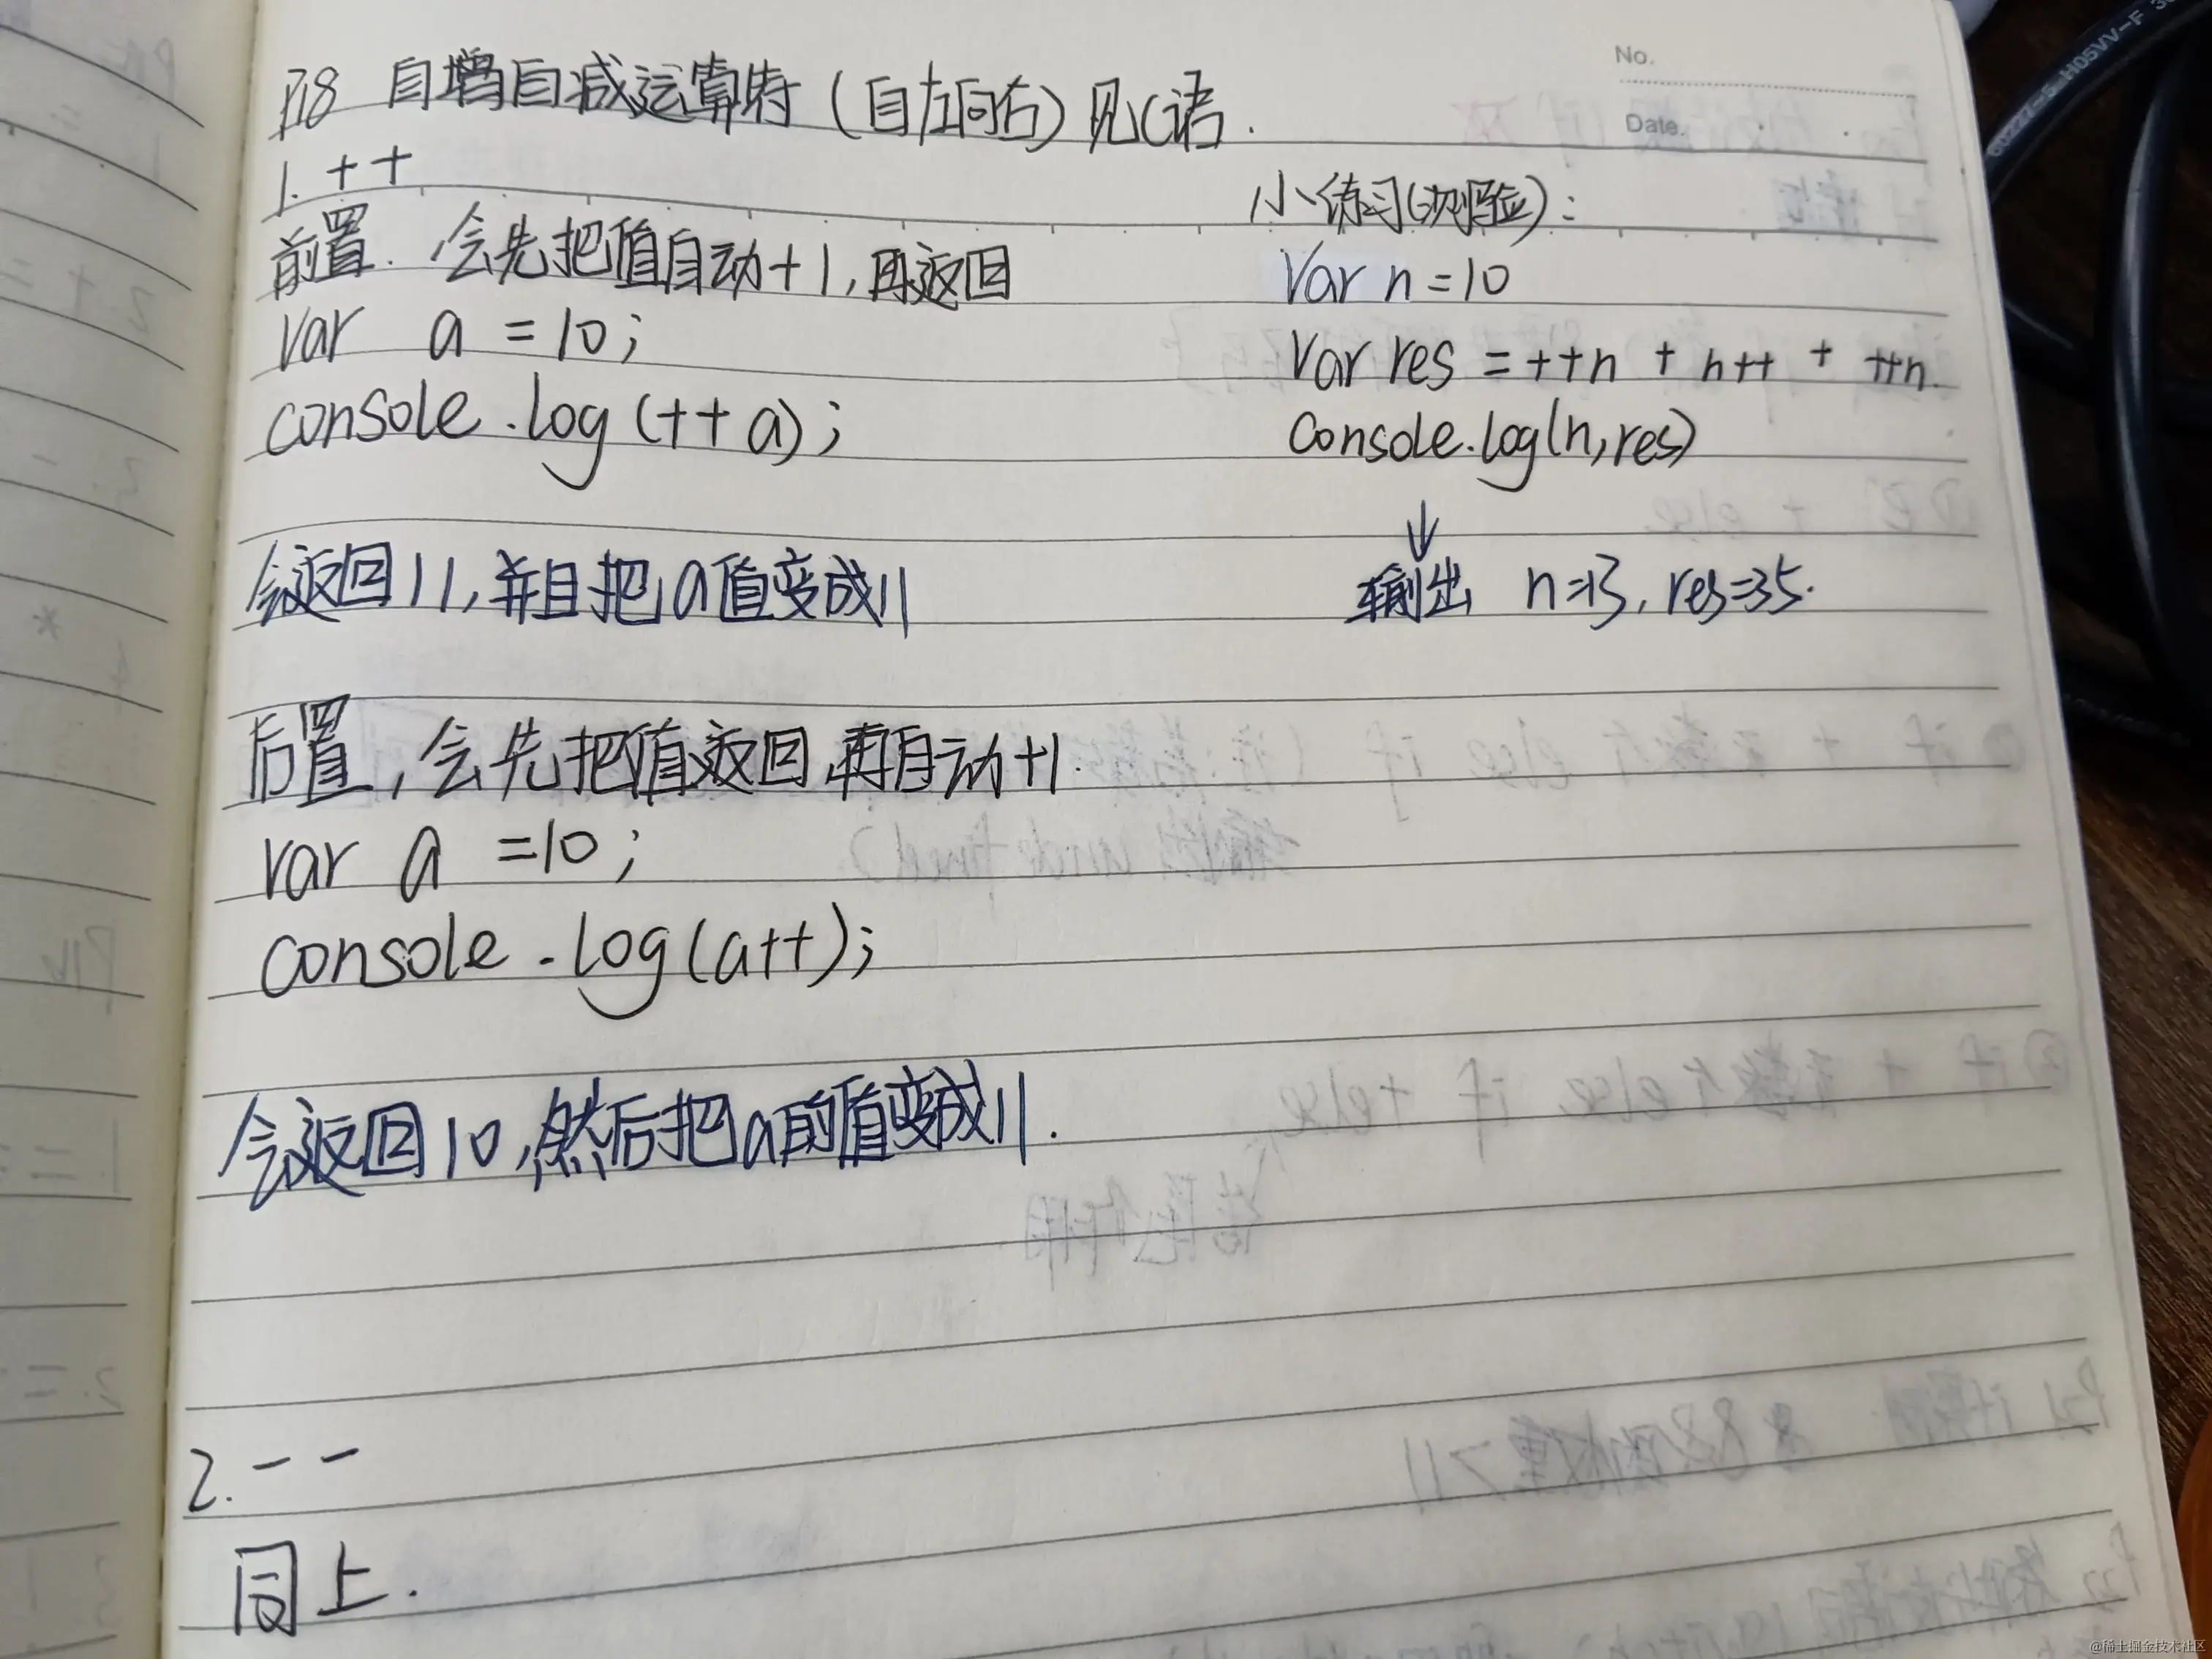 P18 自增自减运算符（自左向右）见C语言.
1. ++
前置. 会先把值自动+1,再返回
var a = 10;
console.log(++a);
会返回11,并且把a值变成11
后置,会先把值返回,再自动+1.
var a =10;
console.log(a++);
会返回10,然后把a的值变成11.
2. --
同上.
No.
Date.
小练习(测验):
Var n=10
Var res = ++n + n++ + ++n.
Console.log(n,res)
↓
输出 n=13, res=35.
@稀土掘金技术社区